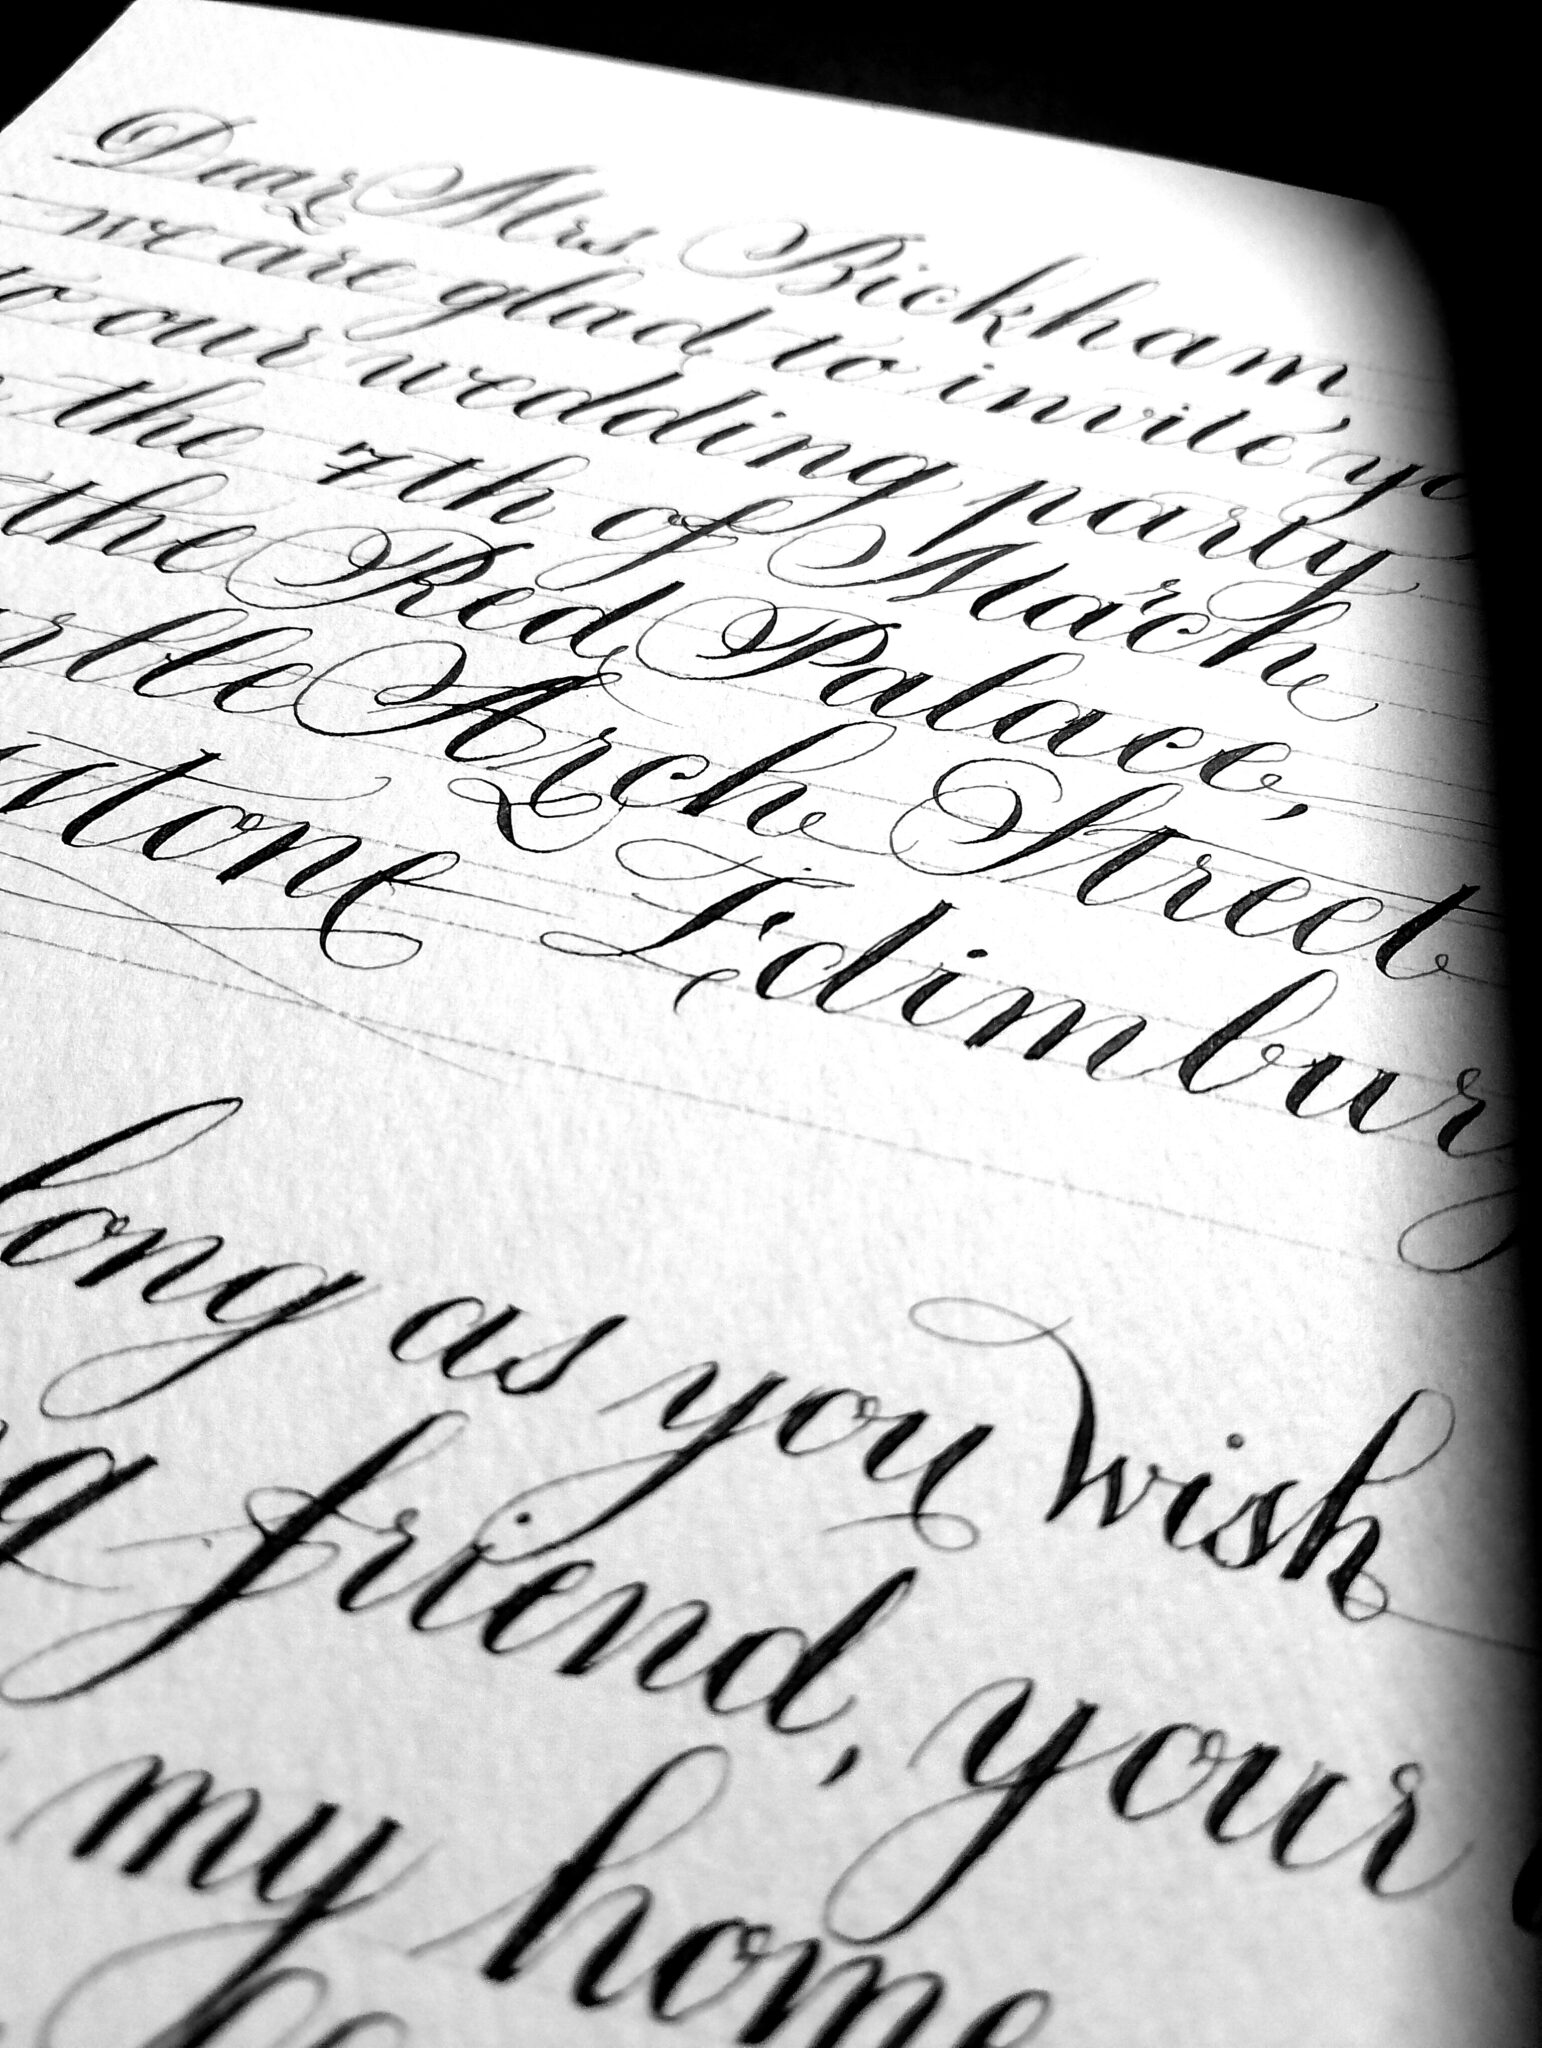 Dear Mrs Bickham,
we are glad to invite
to our wedding party
the 7th of March
the Red Palace,
Arch Street
Edimbury
long as you wish
friend, your
my home